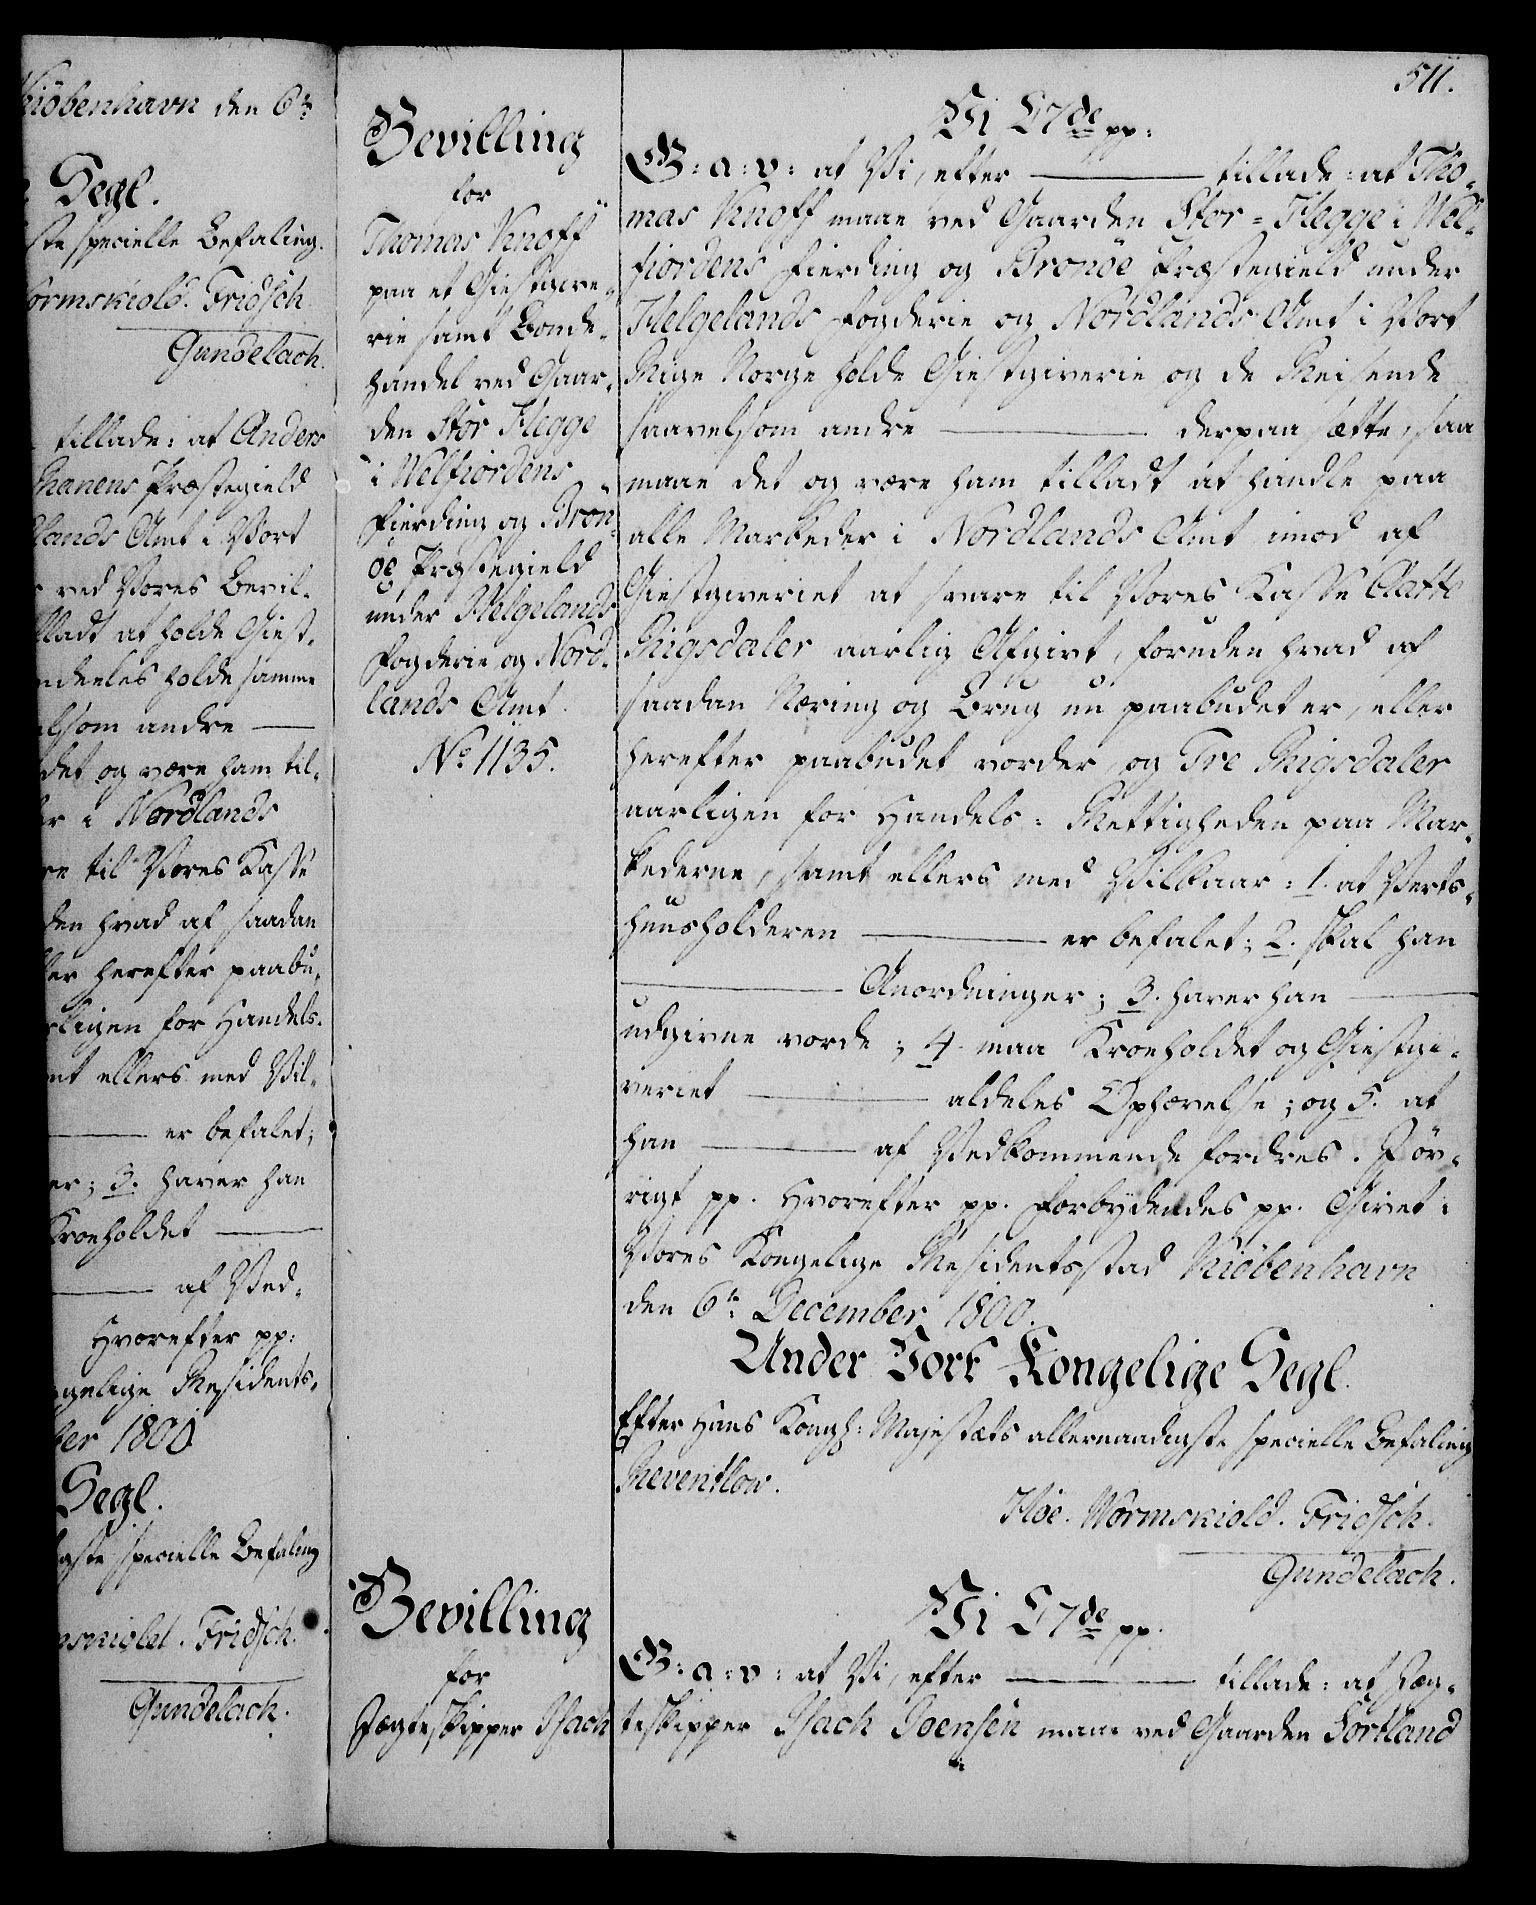 Kiöbenhavn den 6te
Segl.
ste specielle Befaling.
ormskiold. Fridsch
Gundelach.
tillade: at Anders
Ranens Præstegield
lands Amt i Vort
ved Vores Bevil-
lladt at holde Giest-
ndeles holde samme
elsom andre —
det og være ham til-
er i Nordlands
re til Vores Kasse
den hvad af saadan
ller herefter paabu-
rligen for Handels-
mt ellers med Vil-
— er befalet;
er; 3. haver han
Kroeholdet —
— af Ved-
Hvorefter pp:
ngelige Residents-
ber 1800
Segl.
gste specielle Befaling
mskiold. Fridsch.
Gundelach.
Bevilling
for
Thomas Knoff
paa et Giestgive-
rie samt Bonde-
handel ved Gaar-
den Stor Hegge
i Welfiordens
Fierding og Brön-
öe Præstegield
under Helgelands
Fogderie og Nord-
lands Amt.
No 1135.
Bevilling
for
Jægteskipper Isach
511.
Vi C7de pp:
G: a: v: at Vi, efter — tillade: at Tho-
mas Knoff maae ved Gaarden Stor-Hegge i Wel-
fiordens Fierding og Brönöe Præstegield under
Helgelands Fogderie og Nordlands Amt i Vort
Rige Norge holde Giestgiverie og de Reisende
saavelsom andre — derpaa sætte, saa
maae det og være ham tilladt at handle paa
alle Markeder i Nordlands Amt imod af
Giestgiveriet at svare til Vores Kasse Aatte
Rigsdaler aarlig Afgivt, foruden hvad af
saadan Næring og Brug nu paabudet er, eller
herefter paabudet vorder, og Tre Rigsdaler
aarligen for Handels-Rettigheden paa Mar-
kederne, samt ellers med Vilkaar: 1. at Verts-
huusholderen — er befalet; 2. skal han
— Anordninger; 3. haver han —
udgivne vorde; 4. maa Kroeholdet og Giestgi-
veriet — aldeles Ophævelse; og 5. at
han — af Vedkommende fordres. I öv-
rigt pp. Hvorefter pp. Forbydendes pp. Givet i
Vores Kongelige Residentsstad Kiöbenhavn
den 6te December 1800.
Under Vort Kongelige Segl.
Efter Hans Kongl: Majestæts allernaadigste specielle Befaling
Reventlow.
Höe. Wormskiold. Fridsch.
Gundelach.
Vi C7de pp.
G: a: v: at Vi, efter — tillade: at Jæg-
teskipper Isach Joensen maae ved Gaarden Sortland